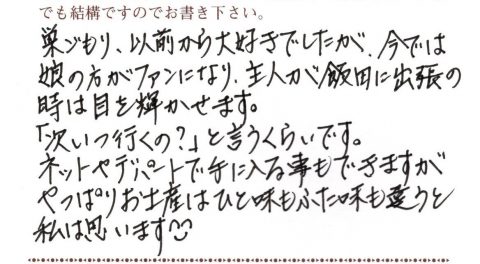 でも結構ですのでお書き下さい。
巣ごもり、以前から大好きでしたが、今では
娘の方がファンになり、主人が飯田に出張の
時は目を輝かせます。
「次いつ行くの?」と言うくらいです。
ネットやデパートで手に入る事もできますが
やっぱりお土産はひと味もふた味も違うと
私は思います